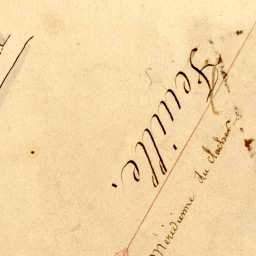 Feuille.
Méridienne du clocher